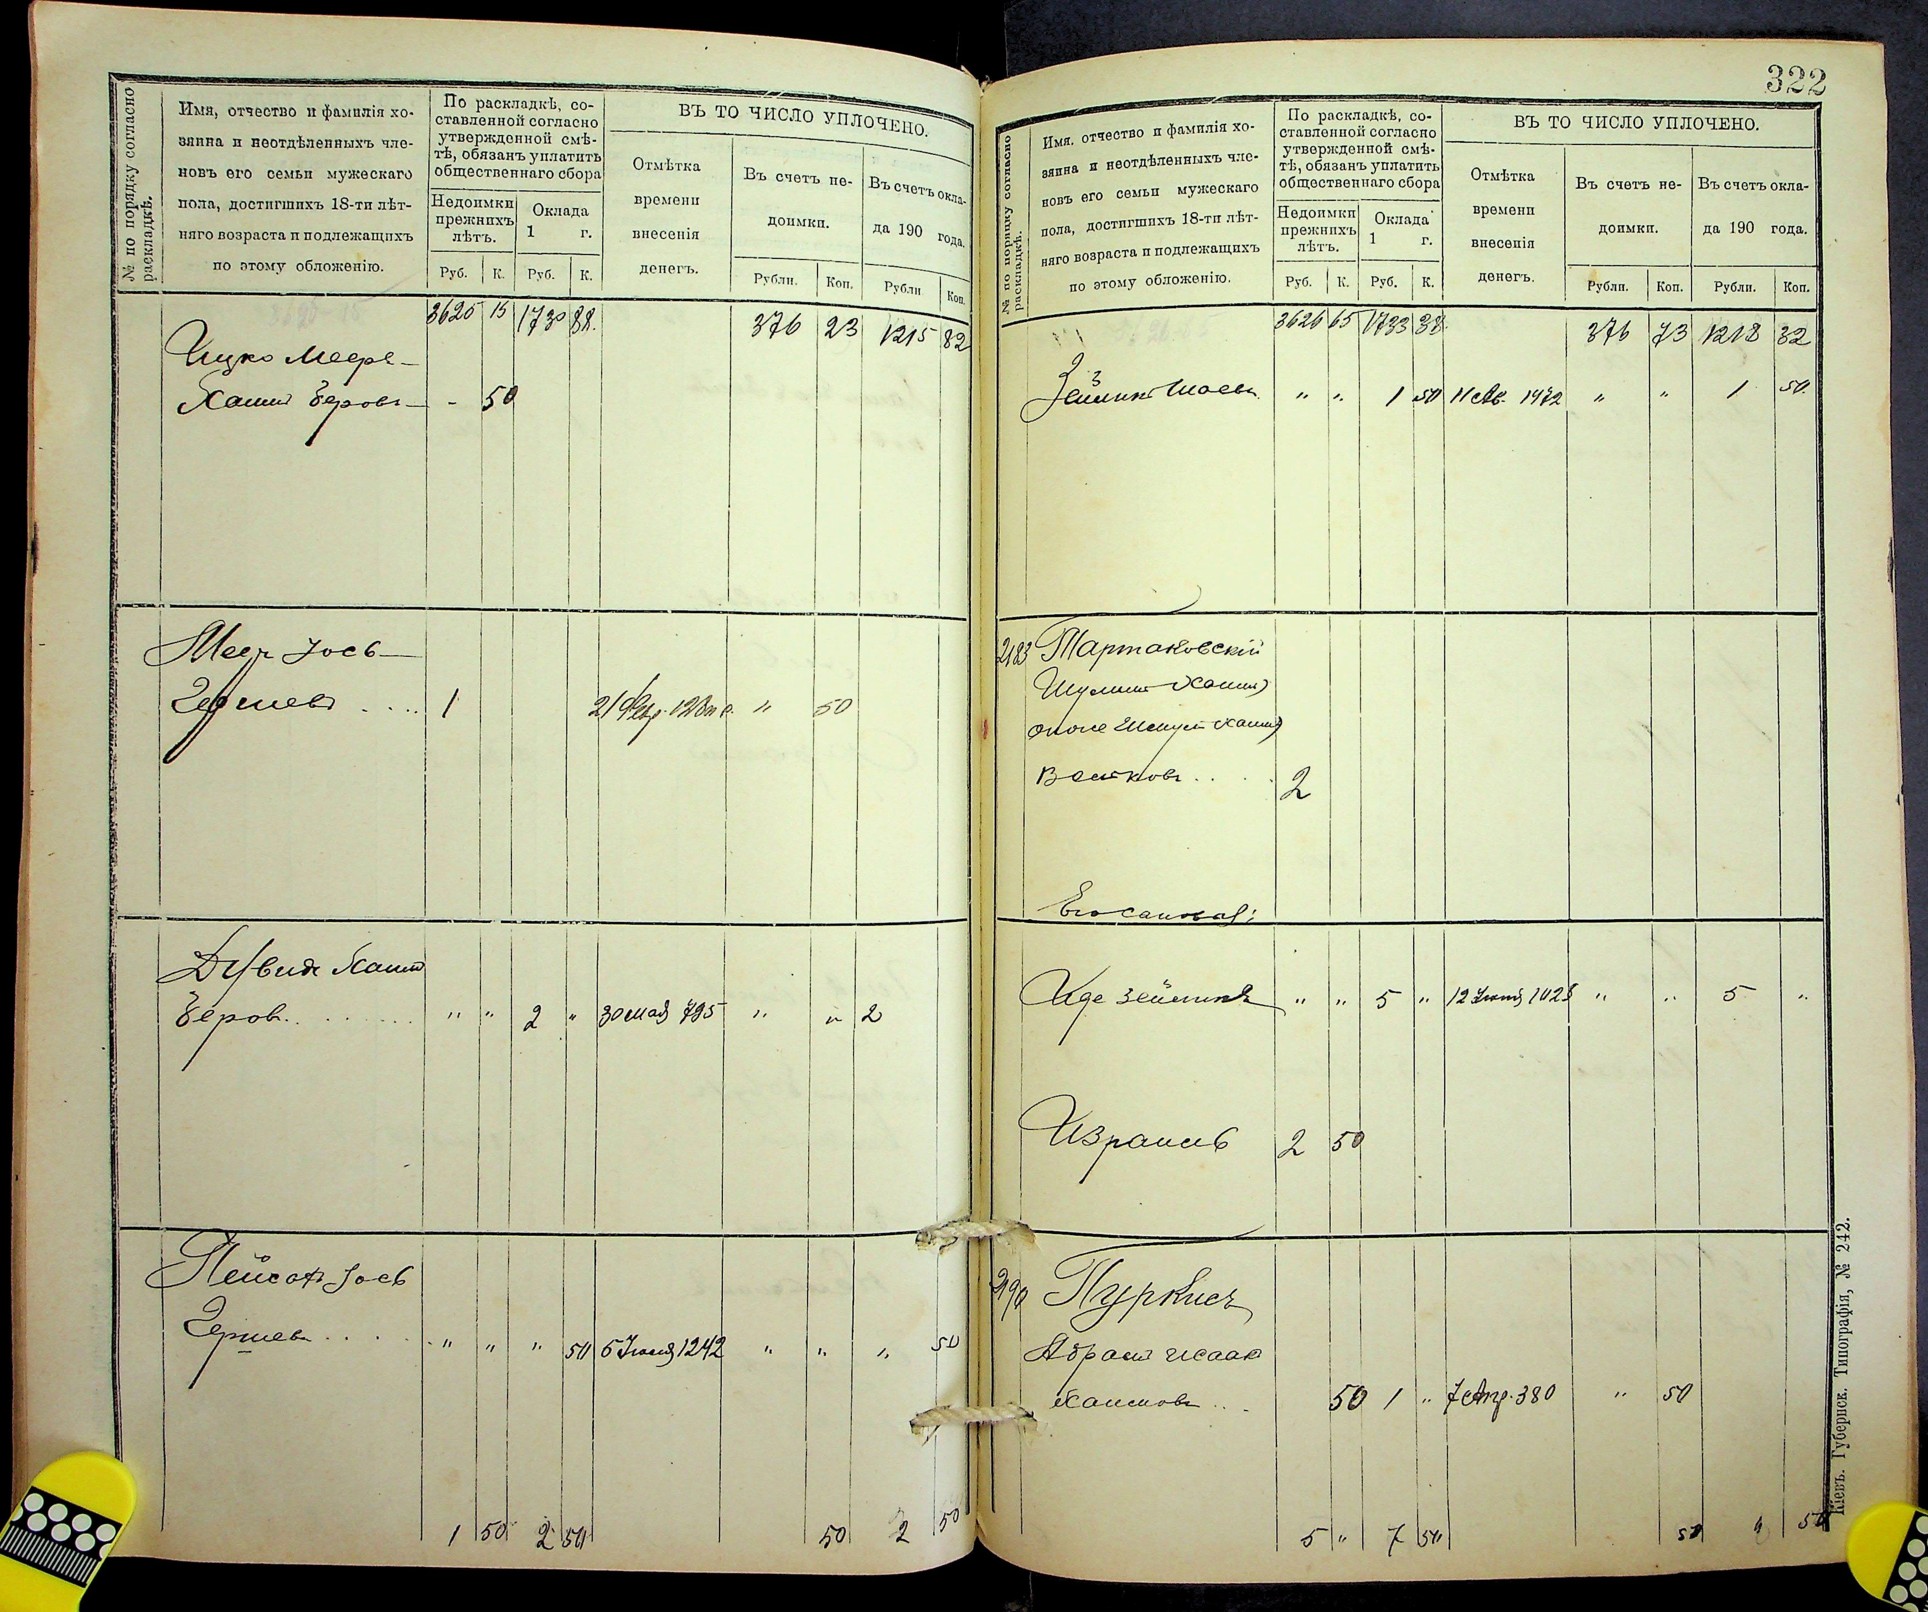 № по порядку согласно раскладкѣ.
Имя, отчество и фамилія хо-
зяина и неотдѣленныхъ чле-
новъ его семьи мужескаго
пола, достигшихъ 18-ти лѣт-
няго возраста и подлежащихъ
по этому обложенію.
По раскладкѣ, со-
ставленной согласно
утвержденной смѣ-
тѣ, обязанъ уплатить
общественнаго сбора
Недоимки
прежнихъ
лѣтъ.
Оклада
1 г.
Руб. К. Руб. К.
ВЪ ТО ЧИСЛО УПЛОЧЕНО.
Отмѣтка
времени
внесенія
денегъ.
Въ счетъ не-
доимки.
Рубли. Коп.
Въ счетъ окла-
да 190 года.
Рубли Коп.
3625 15 1730 88. 376 23 1215 82
Ицко Меере-
Хаим Беровъ - 50
Меер Іось
Гершевъ 1 " 50
Дувидъ Хаим
Беров. " " 2 " 30 мая 795 " " 2
Пейсахъ Іось
Гершевъ " " " 50 5 Іюня 1242 " " " 50
1 50 2 50 50 2 50
322
№ по порядку согласно раскладкѣ.
Имя, отчество и фамилія хо-
зяина и неотдѣленныхъ чле-
новъ его семьи мужескаго
пола, достигшихъ 18-ти лѣт-
няго возраста и подлежащихъ
по этому обложенію.
По раскладкѣ, со-
ставленной согласно
утвержденной смѣ-
тѣ, обязанъ уплатить
общественнаго сбора
Недоимки
прежнихъ
лѣтъ.
Оклада
1 г.
Руб. К. Руб. К.
ВЪ ТО ЧИСЛО УПЛОЧЕНО.
Отмѣтка
времени
внесенія
денегъ.
Въ счетъ не-
доимки.
Рубли. Коп.
Въ счетъ окла-
да 190 года.
Рубли. Коп.
3626 65 1733 38 376 73 1218 32
" " 1 50 " " 1 50.
2183 Тартаковскій
2
" " 5 " " " 5 "
Израиль 2 50
2190 Пуркисъ
Абрам Исаак
Хаимовъ 50 1 " 7 Апр. 380 " 50
5 " 7 50 50
Кіевъ. Губернск. Типографія, № 242.